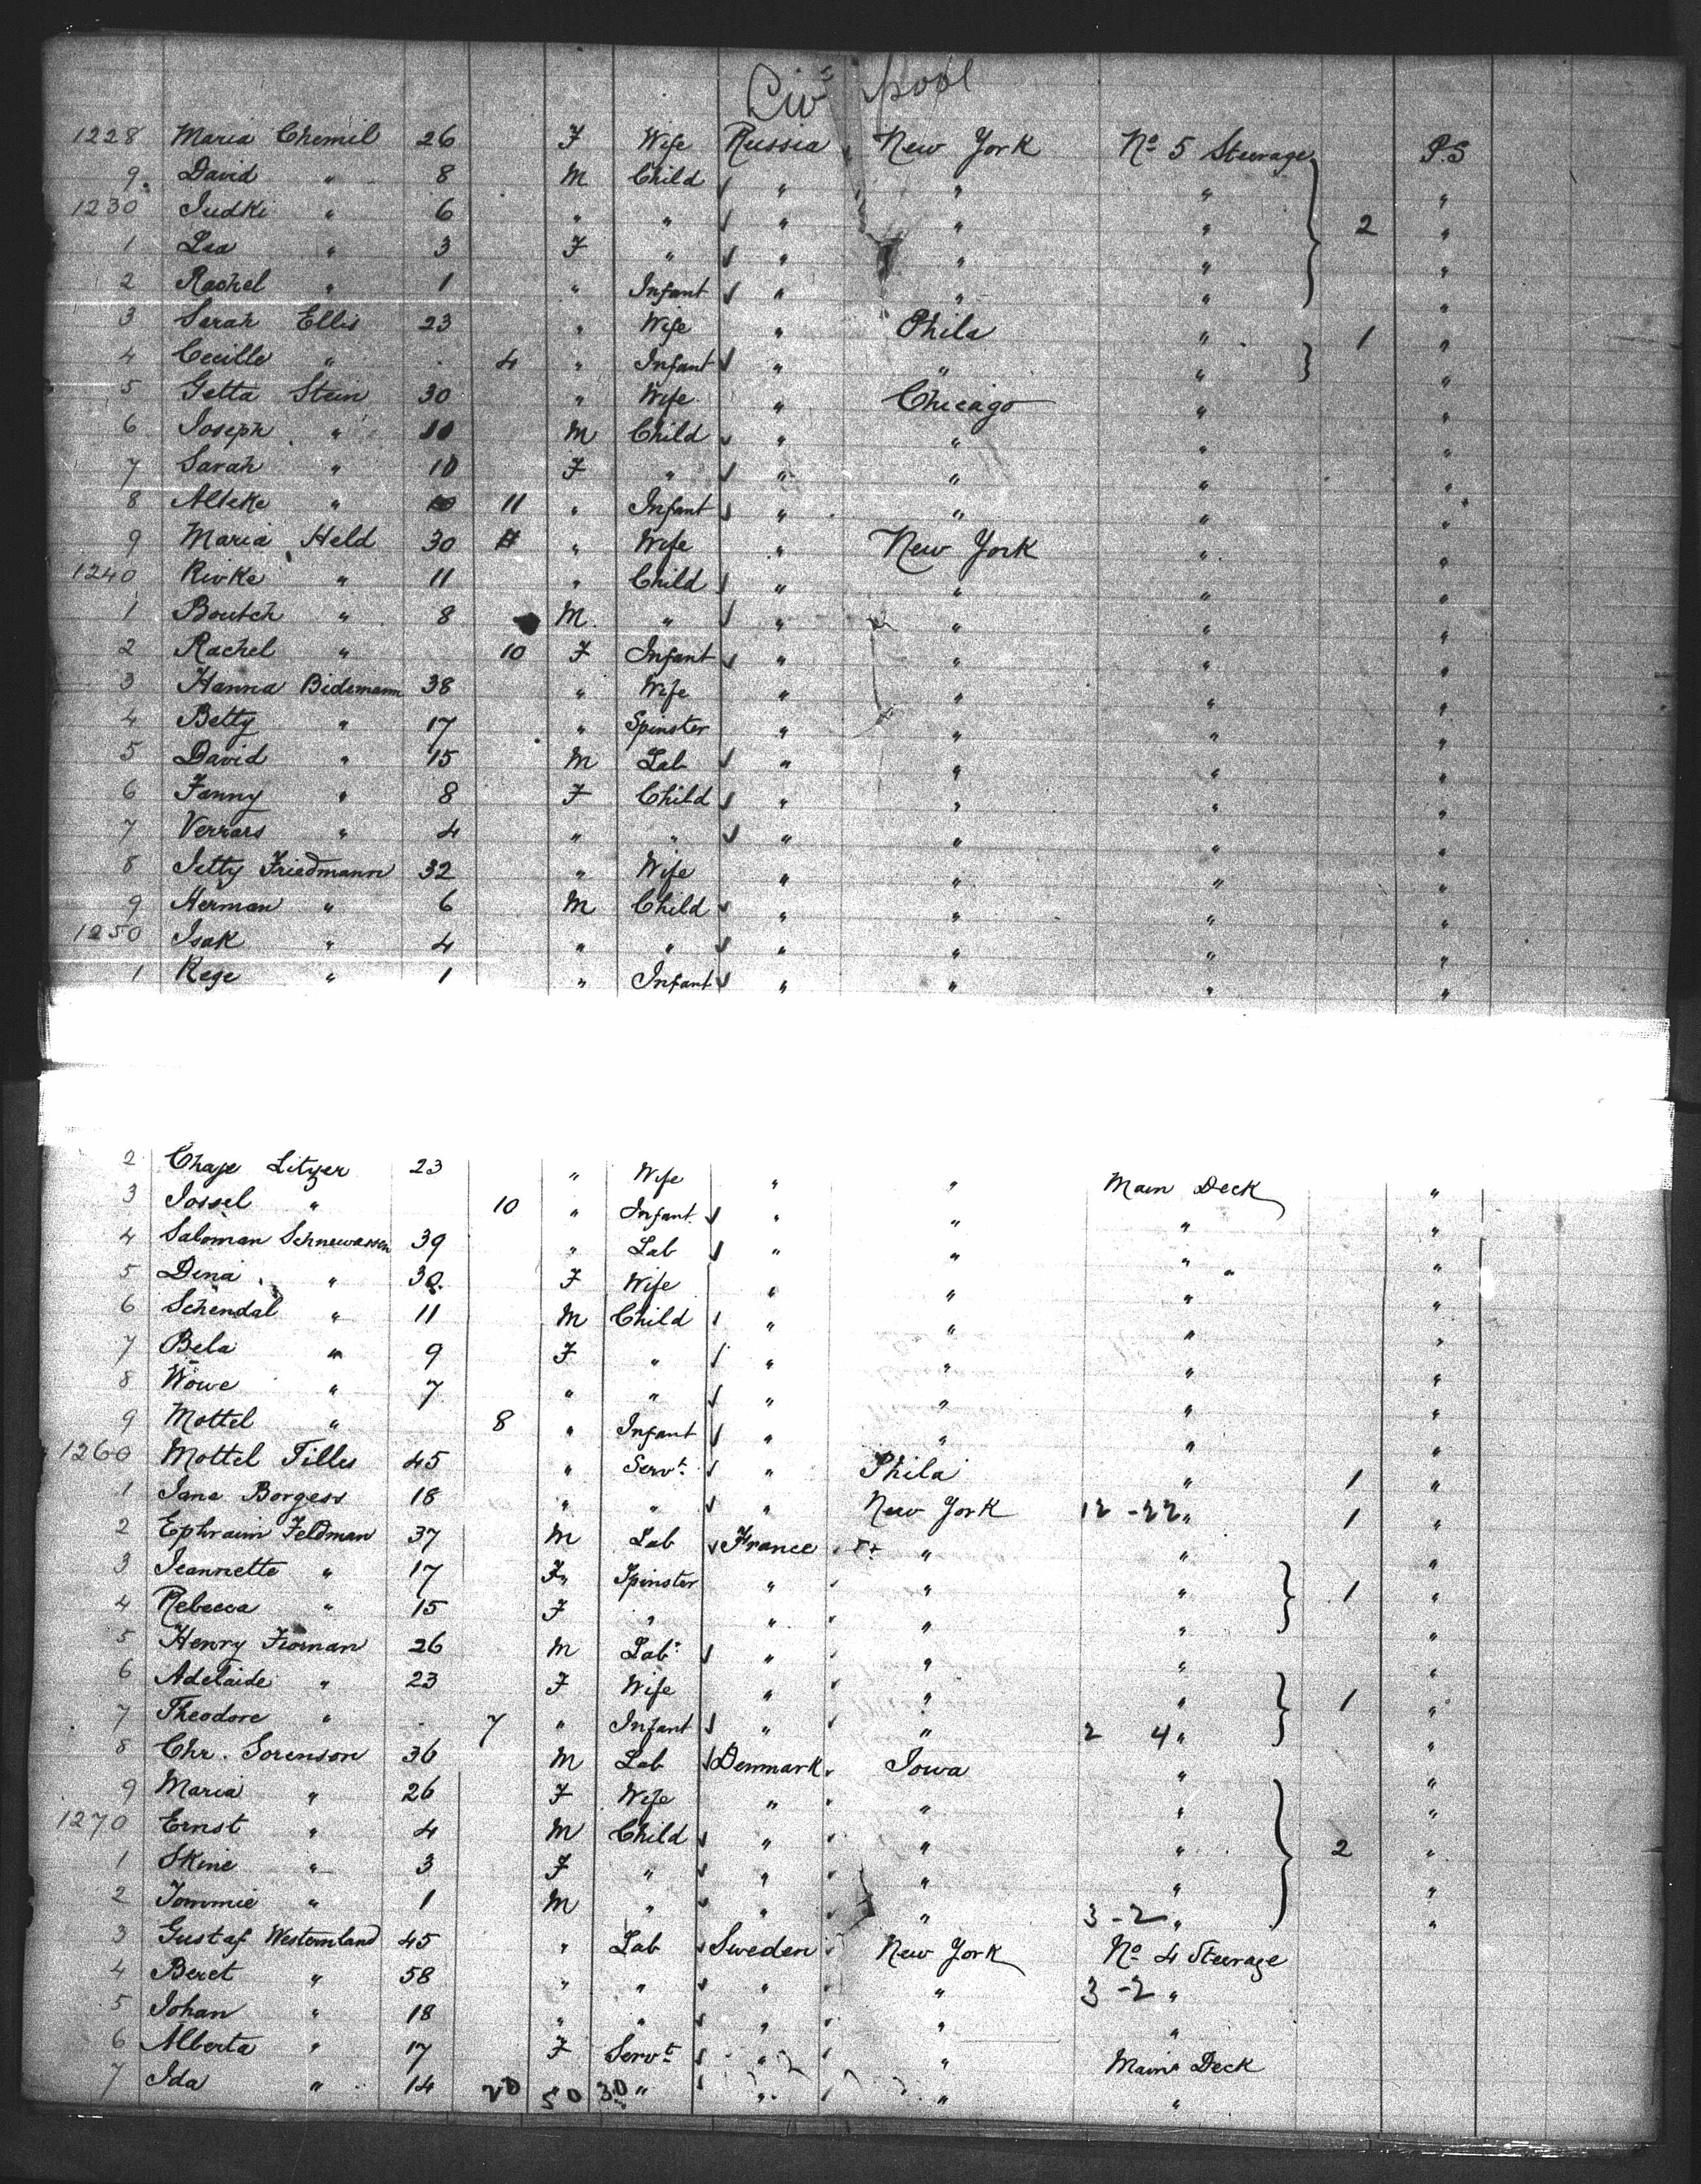 Liv's pool
1228 Maria Chemil 26 F Wife Russia New York No 5 Steerage P.S
9 David " 8 M Child " " " "
1230 Judki " 6 " " " " " 2 "
1 Lea " 3 F " " " " "
2 Rachel " 1 " Infant " " " "
3 Sarah Ellis 23 " Wife " Phila " 1 "
4 Cecille " 4 " Infant " " " "
5 Getta Stein 30 " Wife " Chicago " "
6 Joseph " 11 M Child " " " "
7 Sarah " 10 F " " " " "
8 Alteke " 11 " Infant " " " "
9 Maria Held 30 " Wife " New York " "
1240 Rivke " 11 " Child " " " "
1 Boutch " 8 M " " " " "
2 Rachel " 10 F Infant " " " "
3 Hanna Bidemann 38 " Wife " " " "
4 Betty " 17 " Spinster " " " "
5 David " 15 M Lab " " " "
6 Fanny " 8 F Child " " " "
7 Verrars " 4 " " " " " "
8 Jetty Friedmann 32 " Wife " " " "
9 Herman " 6 M Child " " " "
1250 Isak " 4 " " " " " "
1 Rege " 1 " Infant " " " "
2 Chaje Lityer 23 " Wife " " Main Deck "
3 Jossel " 10 " Infant " " " "
4 Saloman Schnewassen 39 " Lab " " " "
5 Dina " 30 F Wife " " " "
6 Schendal " 11 M Child " " " "
7 Bela " 9 F " " " " "
8 Wowe " 7 " " " " " "
9 Mottel " 8 " Infant " " " "
1260 Mottel Tilles 45 " Servt " Phila " 1 "
1 Jane Borgess 18 " " " New York 12 - 22 " 1 "
2 Ephraim Feldman 37 M Lab France " " "
3 Jeannette " 17 F" Spinster " " " 1 "
4 Rebecca " 15 F " " " " "
5 Henry Froman 26 M Lab " " " "
6 Adelaide " 23 F Wife " " " 1 "
7 Theodore " 7 " Infant " " 2 4 " "
8 Chr. Sorenson 36 M Lab Denmark Iowa " "
9 Maria " 26 F Wife " " " "
1270 Ernst " 4 M Child " " " 2 "
1 Skine " 3 F " " " " "
2 Tommie " 1 M " " " 3 - 2 " "
3 Gustaf Westernland 45 " Lab Sweden New York No 4 Steerage
4 Beret " 58 " " " " 3 - 2 "
5 Johan " 18 " " " " "
6 Alberta " 17 F Servt " " Main Deck
7 Ida " 14 20 50 30 " " " "